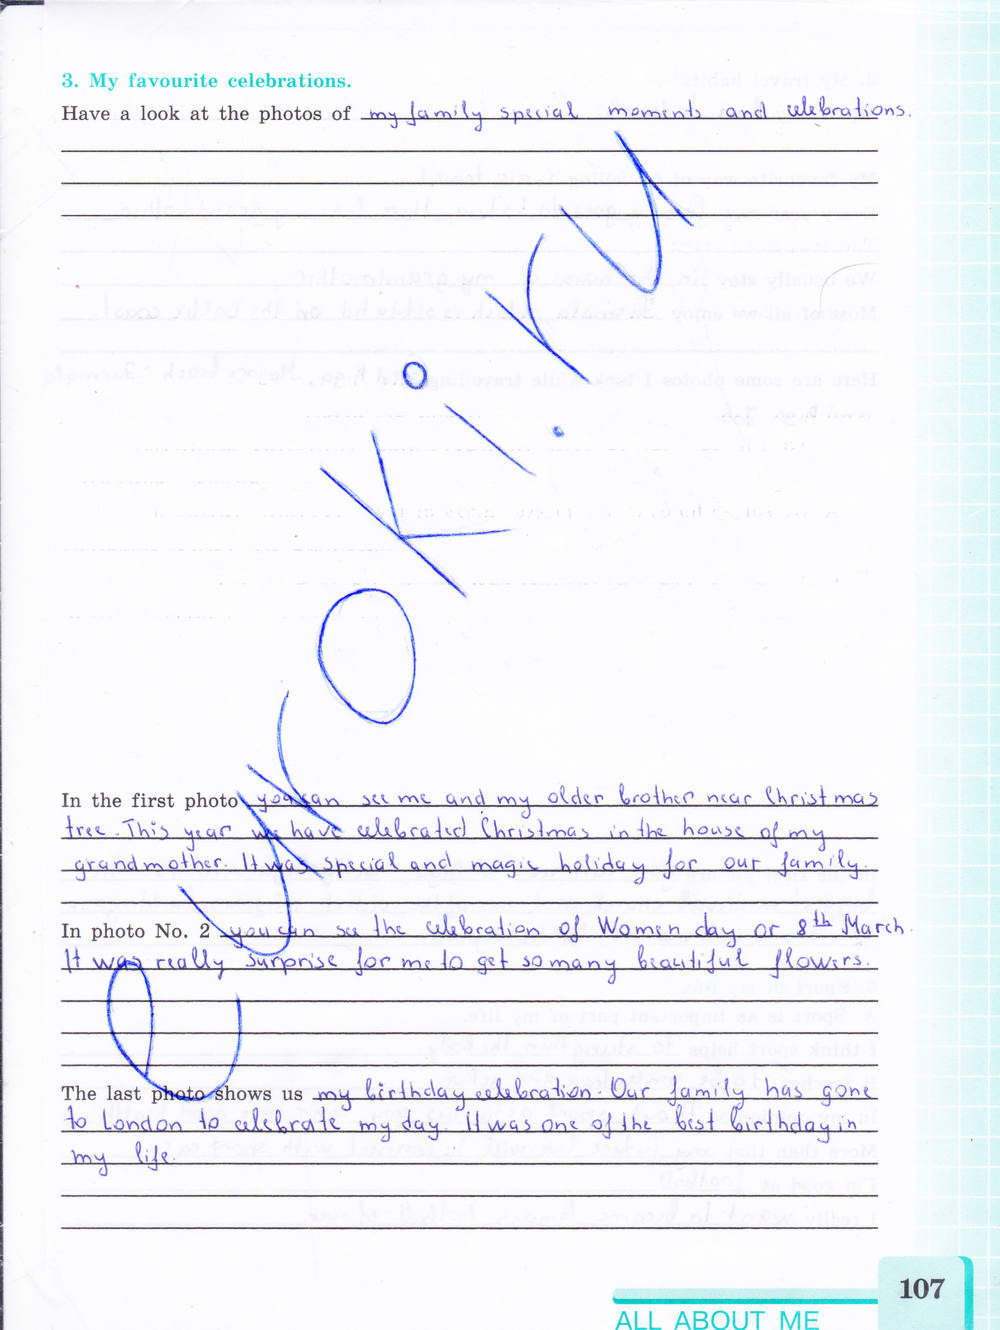 3. My favourite celebrations.
Have a look at the photos of my family special moments and celebrations.
In the first photo you can see me and my older brother near Christmas
tree. This year we have celebrated Christmas in the house of my
grandmother. It was special and magic holiday for our family.
In photo No. 2 you can see the celebration of Women day or 8th March.
It was really surprise for me to get so many beautiful flowers.
The last photo shows us my birthday celebration. Our family has gone
to London to celebrate my day. It was one of the best birthday in
my life.
107
ALL ABOUT ME